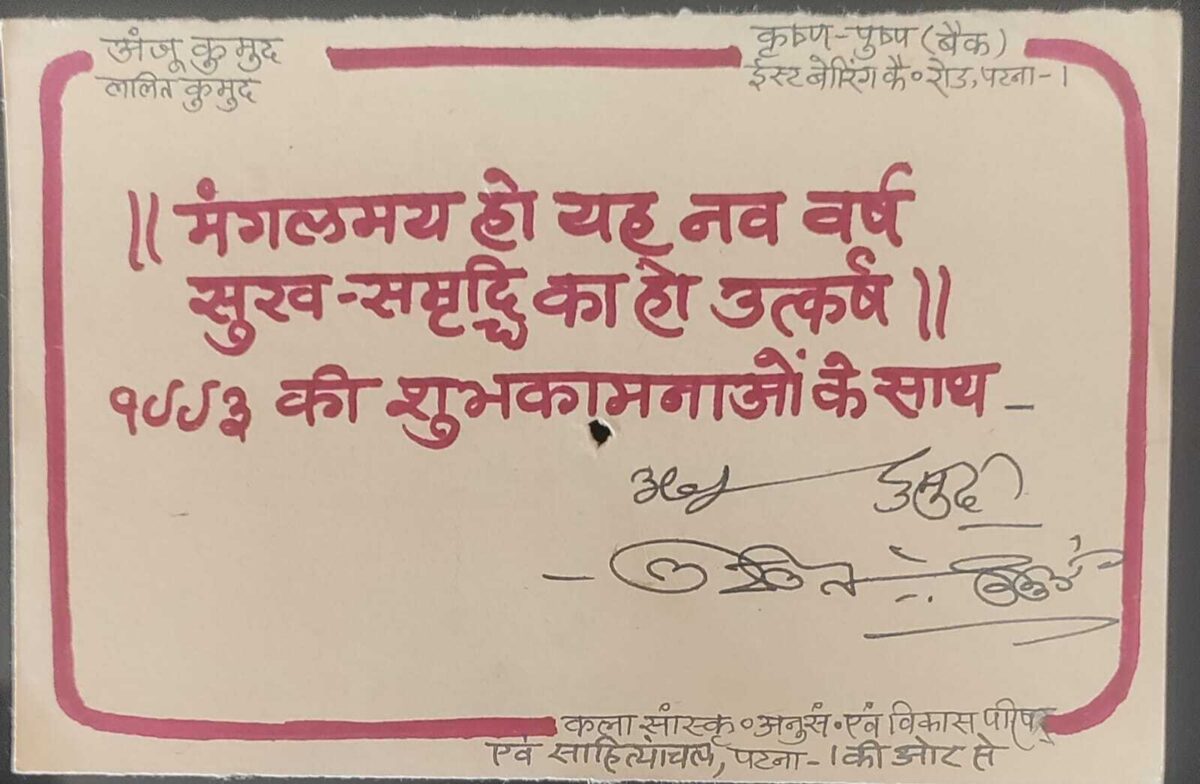 अंजू कुमुद
ललित कुमुद
कृष्ण-पुष्प (बैक)
ईस्ट बोरिंग कै० रोड, पटना-1
॥ मंगलमय हो यह नव वर्ष
सुख-समृद्धि का हो उत्कर्ष ॥
१९९३ की शुभकामनाओं के साथ –
अंजू कुमुद
- ललित कुमुद
कला सांस्कृ० अनुसं० एवं विकास परिषद्
एवं साहित्यांचल, पटना-1 की ओर से